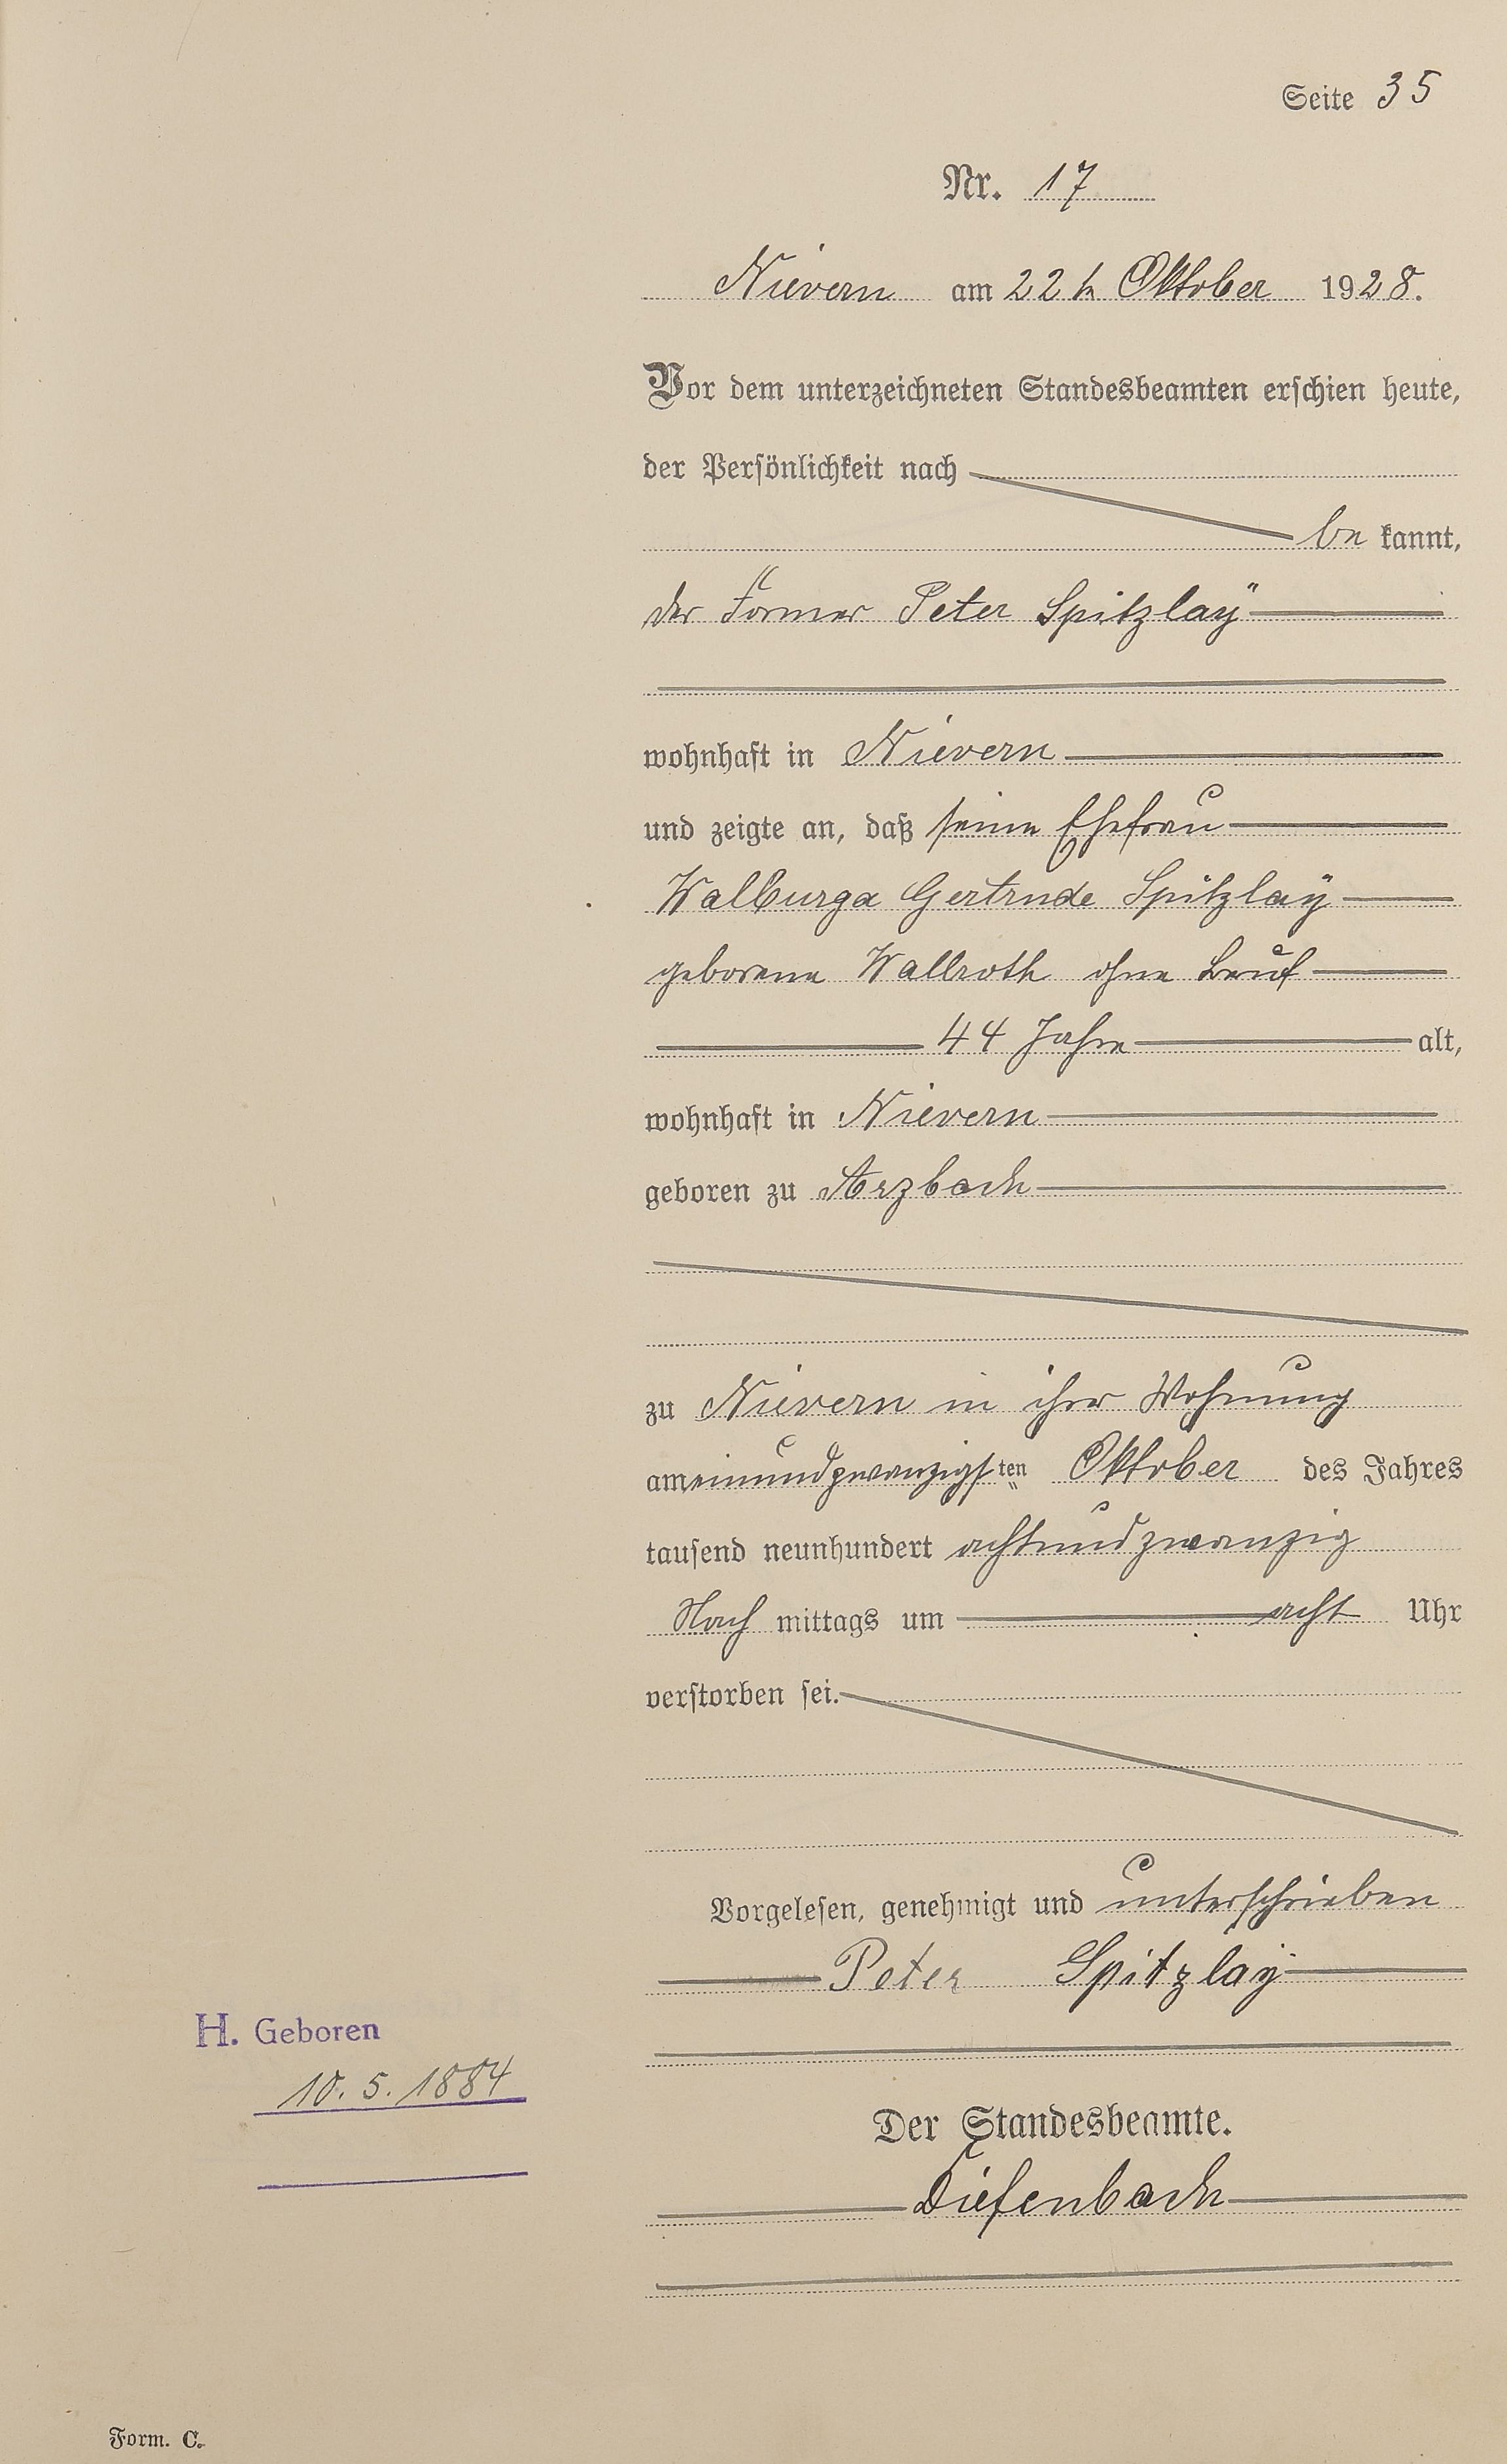 Seite 35
Nr. 17
Nievern am 22 t Oktober 1928.
Vor dem unterzeichneten Standesbeamten erschien heute,
der Persönlichkeit nach
be kannt,
der Former Peter Spitzlaÿ
wohnhaft in Nievern
und zeigte an, daß seine Ehefrau
Walburga Gertrude Spitzlaÿ
geborene Wallroth ohne Beruf
44 Jahre alt,
wohnhaft in Nievern
geboren zu Arzbach
zu Nievern in ihrer Wohnung
am einundzwanzigsten Oktober des Jahres
tausend neunhundert achtundzwanzig
Nach mittags um acht Uhr
verstorben sei.
Vorgelesen, genehmigt und unterschrieben
Peter Spitzlaÿ
H. Geboren
10. 5. 1884
Der Standesbeamte.
Diefenbach
Form. C.